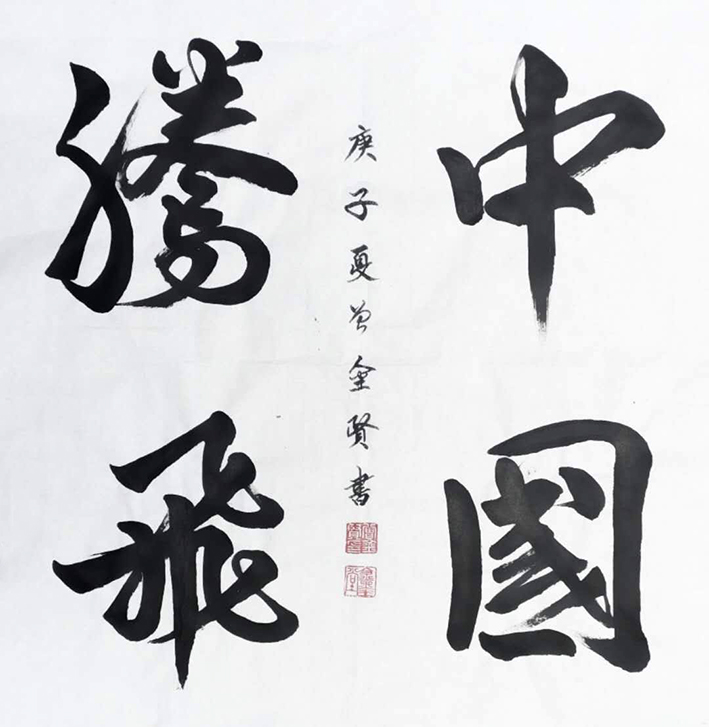 中國
騰飛
庚子夏曾金賢書